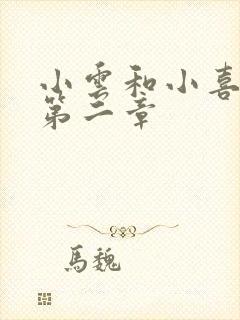 小雲和小喜
第二章
馬魏